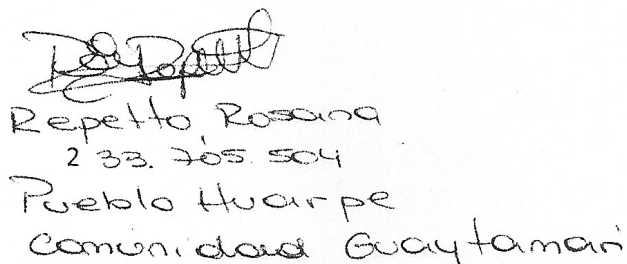 Repetto, Rosana
2 33.705.504
Pueblo Huarpe
Comunidad Guaytamari